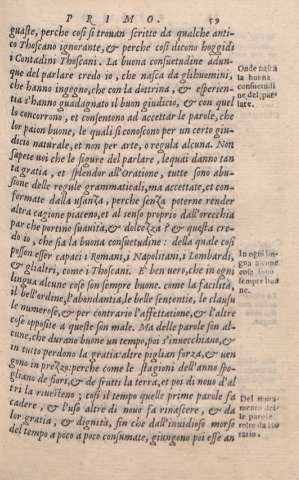 PRIMO. 59
guaste, perche cosi si trouan scritte da qualche anti-
co Thoscano ignorante, & perche cosi dicono hoggidi
i Contadini Thoscani. La buona consuetudine adun-
que del parlare credo io, che nasca da gli huomini,
che hanno ingegno, che con la dottrina, & esperien-
tia s'hanno guadagnato il buon giudicio, & con quel
lo concorrono, et consenton ad accettar le parole, che
lor paion buone, le quali si conoscono per un certo giu-
dicio naturale, et non per arte, o regula alcuna. Non
sapete uoi che le figure del parlare, lequali danno tan
ta gratia, et splendor all'Oratione, tutte sono abu-
sione delle regule grammaticali, ma accettate, et con-
fermate dalla usanza, perche senza poterne render
altra cagione piaceno, et al senso proprio dall'orecchia
par che portino suauità, & dolcezza? & questa cre-
do io, che sia la buona consuetudine: della quale cosi
posson esser capaci i Romani, i Napolitani, i Lombardi,
& gli altri, come i Thoscani. E ben uero, che in ogni
lingua alcune cose son sempre buone. come la facilità,
il bell'ordine, l'abondantia, le belle sententie, le clausu
le numerose, & per contrario l'affettatione, & l'altre
cose opposite a queste son male. Ma delle parole son al-
cune, che durano buone un tempo, poi s'inuecchiano, &
in tutto perdono la gratia: altre piglian forza, & uen
gono in prezzo: perche come le stagioni dell'anno spo-
gliano de fiori, & de frutti la terra, et poi di nouo d'al
tri la riuestono; cosi il tempo quelle prime parole fa
cadere, & l'uso altre di nouo fa rinascere, & da
lor gratia, & dignità, fin che dall'inuidioso morso
del tempo a poco a poco consumate, giungono poi esse an
Onde nasca
la buona
consuetudi
ne del par-
lare.
In ogni lin-
gua alcune
cose sono
sempre buo
ne.
Del muta-
mento del-
le parole